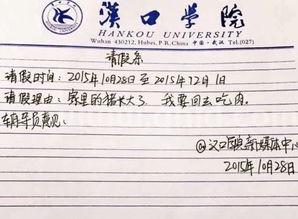 漢口学院
HANKOU UNIVERSITY
Wuhan 430212, Hubei, P.R.China 中国·武汉 Tel:(027)
请假条
请假时间：2015年10月28日至2015年12月1日
请假理由：家里的猪长大了 我要回去吃肉.
辅导员意见：
@汉口学院新媒体中心
2015年10月28日